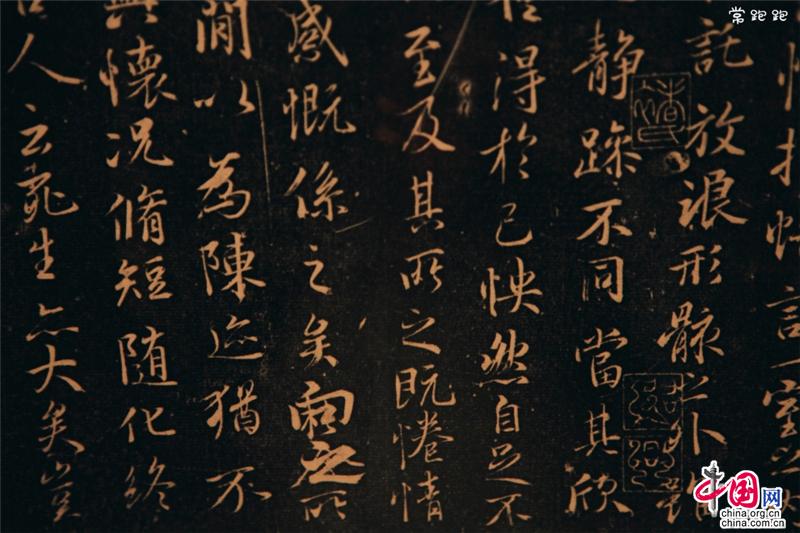 常跑跑
言一室
託放浪形骸之外雖
靜躁不同當其欣
得於己怏然自足不
至及其所之既惓情
感慨係之矣向之所
閒以為陳迹猶不
興懷況脩短隨化終
人云死生亦大矣豈
中国网
china.org.cn
china.com.cn